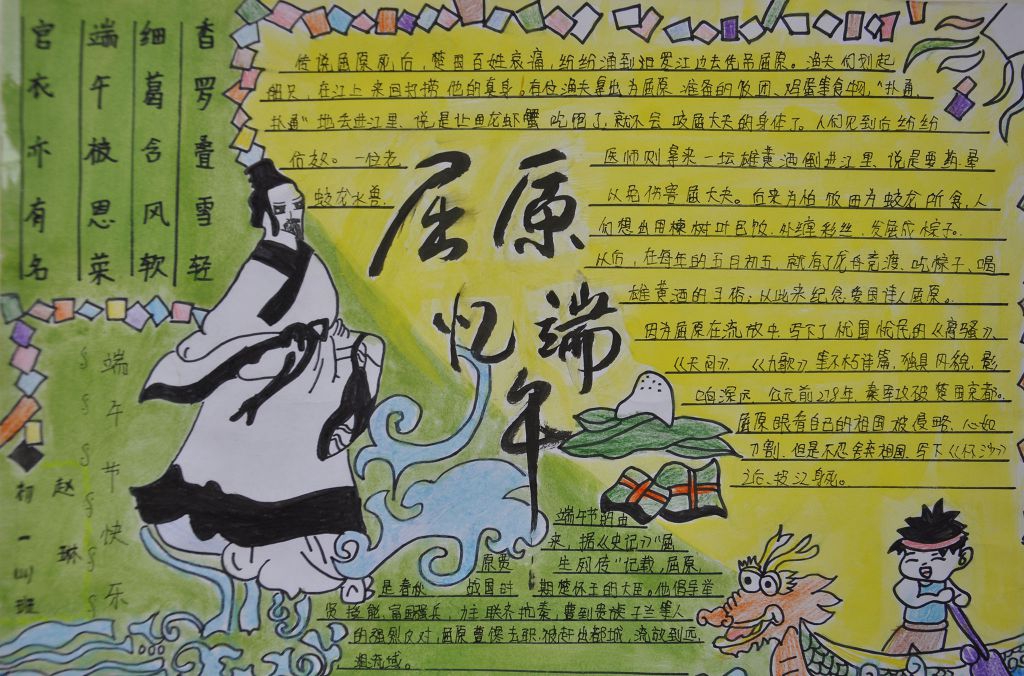 宫衣亦有名
端午被恩荣
细葛含风软
香罗叠雪轻
传说屈原死后，楚国百姓哀痛，纷纷涌到汨罗江边去凭吊屈原。渔夫们划起
船只，在江上来回打捞他的真身。有位渔夫拿出为屈原准备的饭团、鸡蛋等食物，“扑通、
扑通”地丢进江里，说是让鱼龙虾蟹吃饱了，就不会咬屈大夫的身体了。人们见到后纷纷
仿效。一位老
医师则拿来一坛雄黄酒倒进江里，说是要药晕
蛟龙水兽，
以免伤害屈大夫。后来为怕饭团为蛟龙所食，人
们想出用楝树叶包饭，外缠彩丝，发展成棕子。
以后，在每年的五月初五，就有了龙舟竞渡、吃粽子、喝
雄黄酒的习俗；以此来纪念爱国诗人屈原。
屈原
忆端
午
因为屈原在流放中，写下了忧国忧民的《离骚》、
《天问》、《九歌》等不朽诗篇，独具风貌，影
响深远。公元前278年，秦军攻破楚国京都。
屈原眼看自己的祖国被侵略，心如
刀割，但是不忍舍弃祖国，写下《怀沙》
之后，投江身死。
端午节的由
来，据《史记》“屈
原贾
生列传”记载，屈原，
是春秋
战国时
期楚怀王的大臣。他倡导举
贤授能，富国强兵，力主联齐抗秦，遭到贵族子兰等人
的强烈反对，屈原遭馋去职，被赶出都城，流放到沅、
湘流域。
端午节快乐
赵琳
初一四班